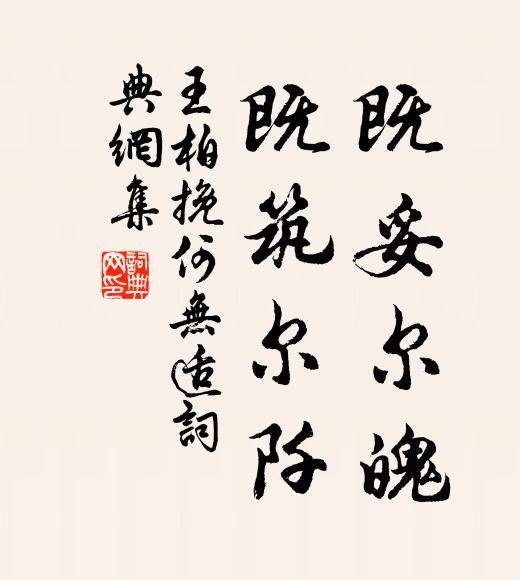 既妥尔魄
既筑尔阡
王柏挽何無适詞
典網集
詞典網印